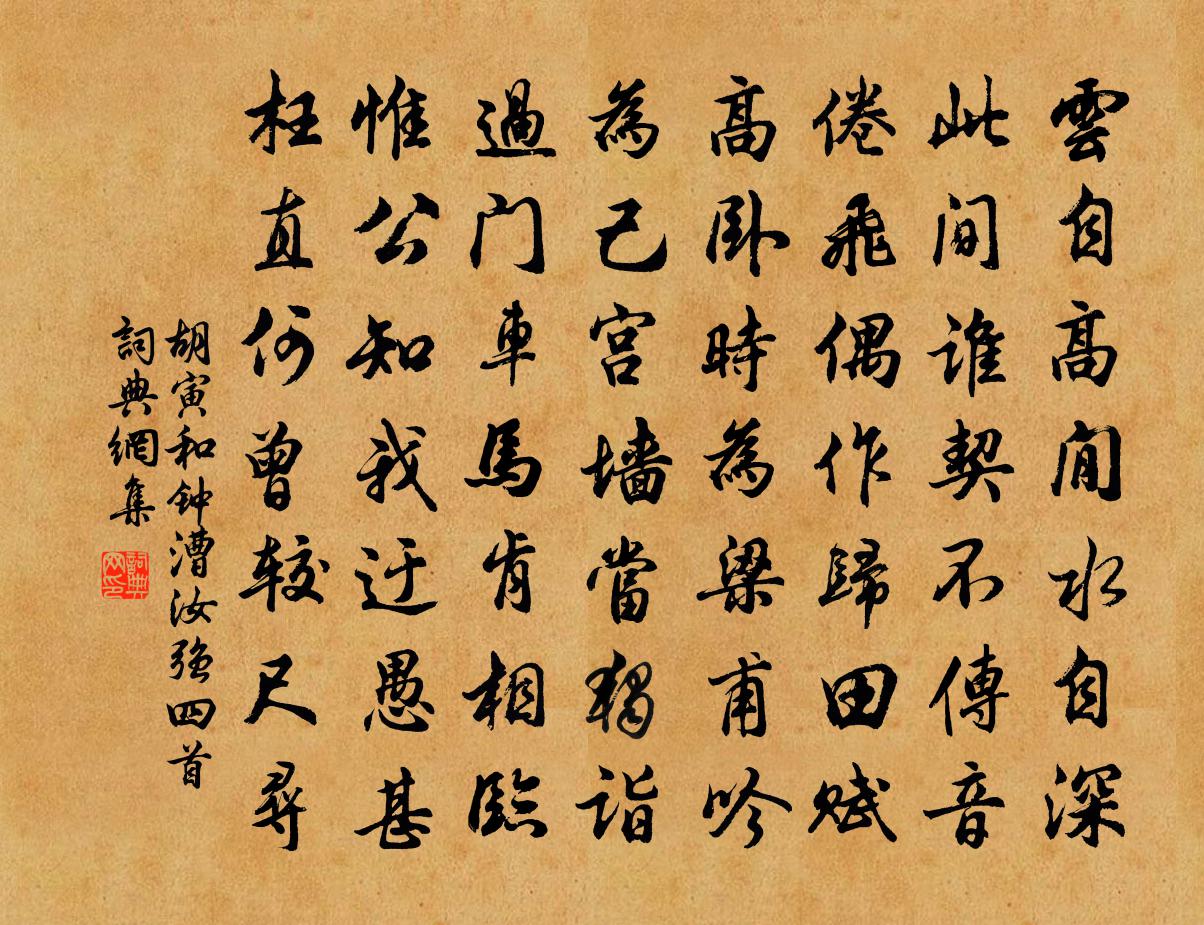 雲自高閒水自深
此间誰契不傳音
倦飛偶作歸田賦
高卧時為梁甫吟
為己宫墙當獨詣
過门車馬肯相臨
惟公知我迂愚甚
枉直何曾較尺尋
胡寅和钟漕汝强四首
詞典網集